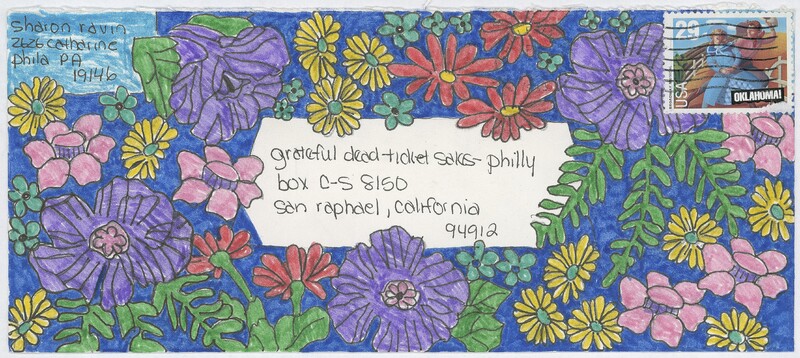 sharon ravin
2626 catharine
phila PA
19146
29
USA
OKLAHOMA!
grateful dead-ticket sales-philly
box C-S 8150
san raphael, california
94912